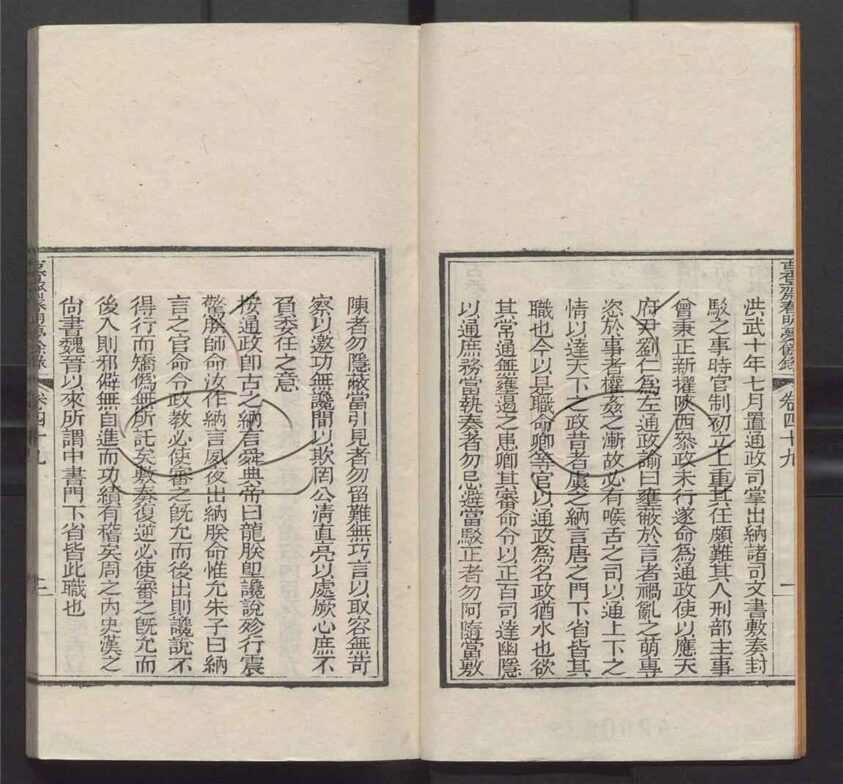 古香齋春明夢餘錄 卷四十九 一
洪武十年七月置通政司掌出納諸司文書敷奏封
駁之事時官制初立上重其任頗難其人刑部主事
曾秉正新擢陝西叅政未行遂命為通政使以應天
府尹劉仁為左通政諭曰壅蔽於言者禍亂之萌專
恣於事者權姦之漸故必有喉舌之司以通上下之
情以達天下之政昔者虞之納言唐之門下省皆其
職也今以是職命卿等官以通政為名政猶水也欲
其常通無壅遏之患卿其審命令以正百司達幽隱
以通庶務當執奏者勿忌避當駁正者勿阿隨當敷
陳者勿隱蔽當引見者勿留難無巧言以取容無苛
察以邀功無讒間以欺罔公清直亮以處厥心庶不
負委任之意
按通政卽古之納言舜典帝曰龍朕堲讒說殄行震
驚朕師命汝作納言夙夜出納朕命惟允朱子曰納
言之官命令政教必使審之旣允而後出則讒說不
得行而矯僞無所託矣敷奏復逆必使審之旣允而
後入則邪僻無自進而功績有稽矣周之內史漢之
尚書魏晉以來所謂中書門下省皆此職也
古香齋春明夢餘錄 卷四十九